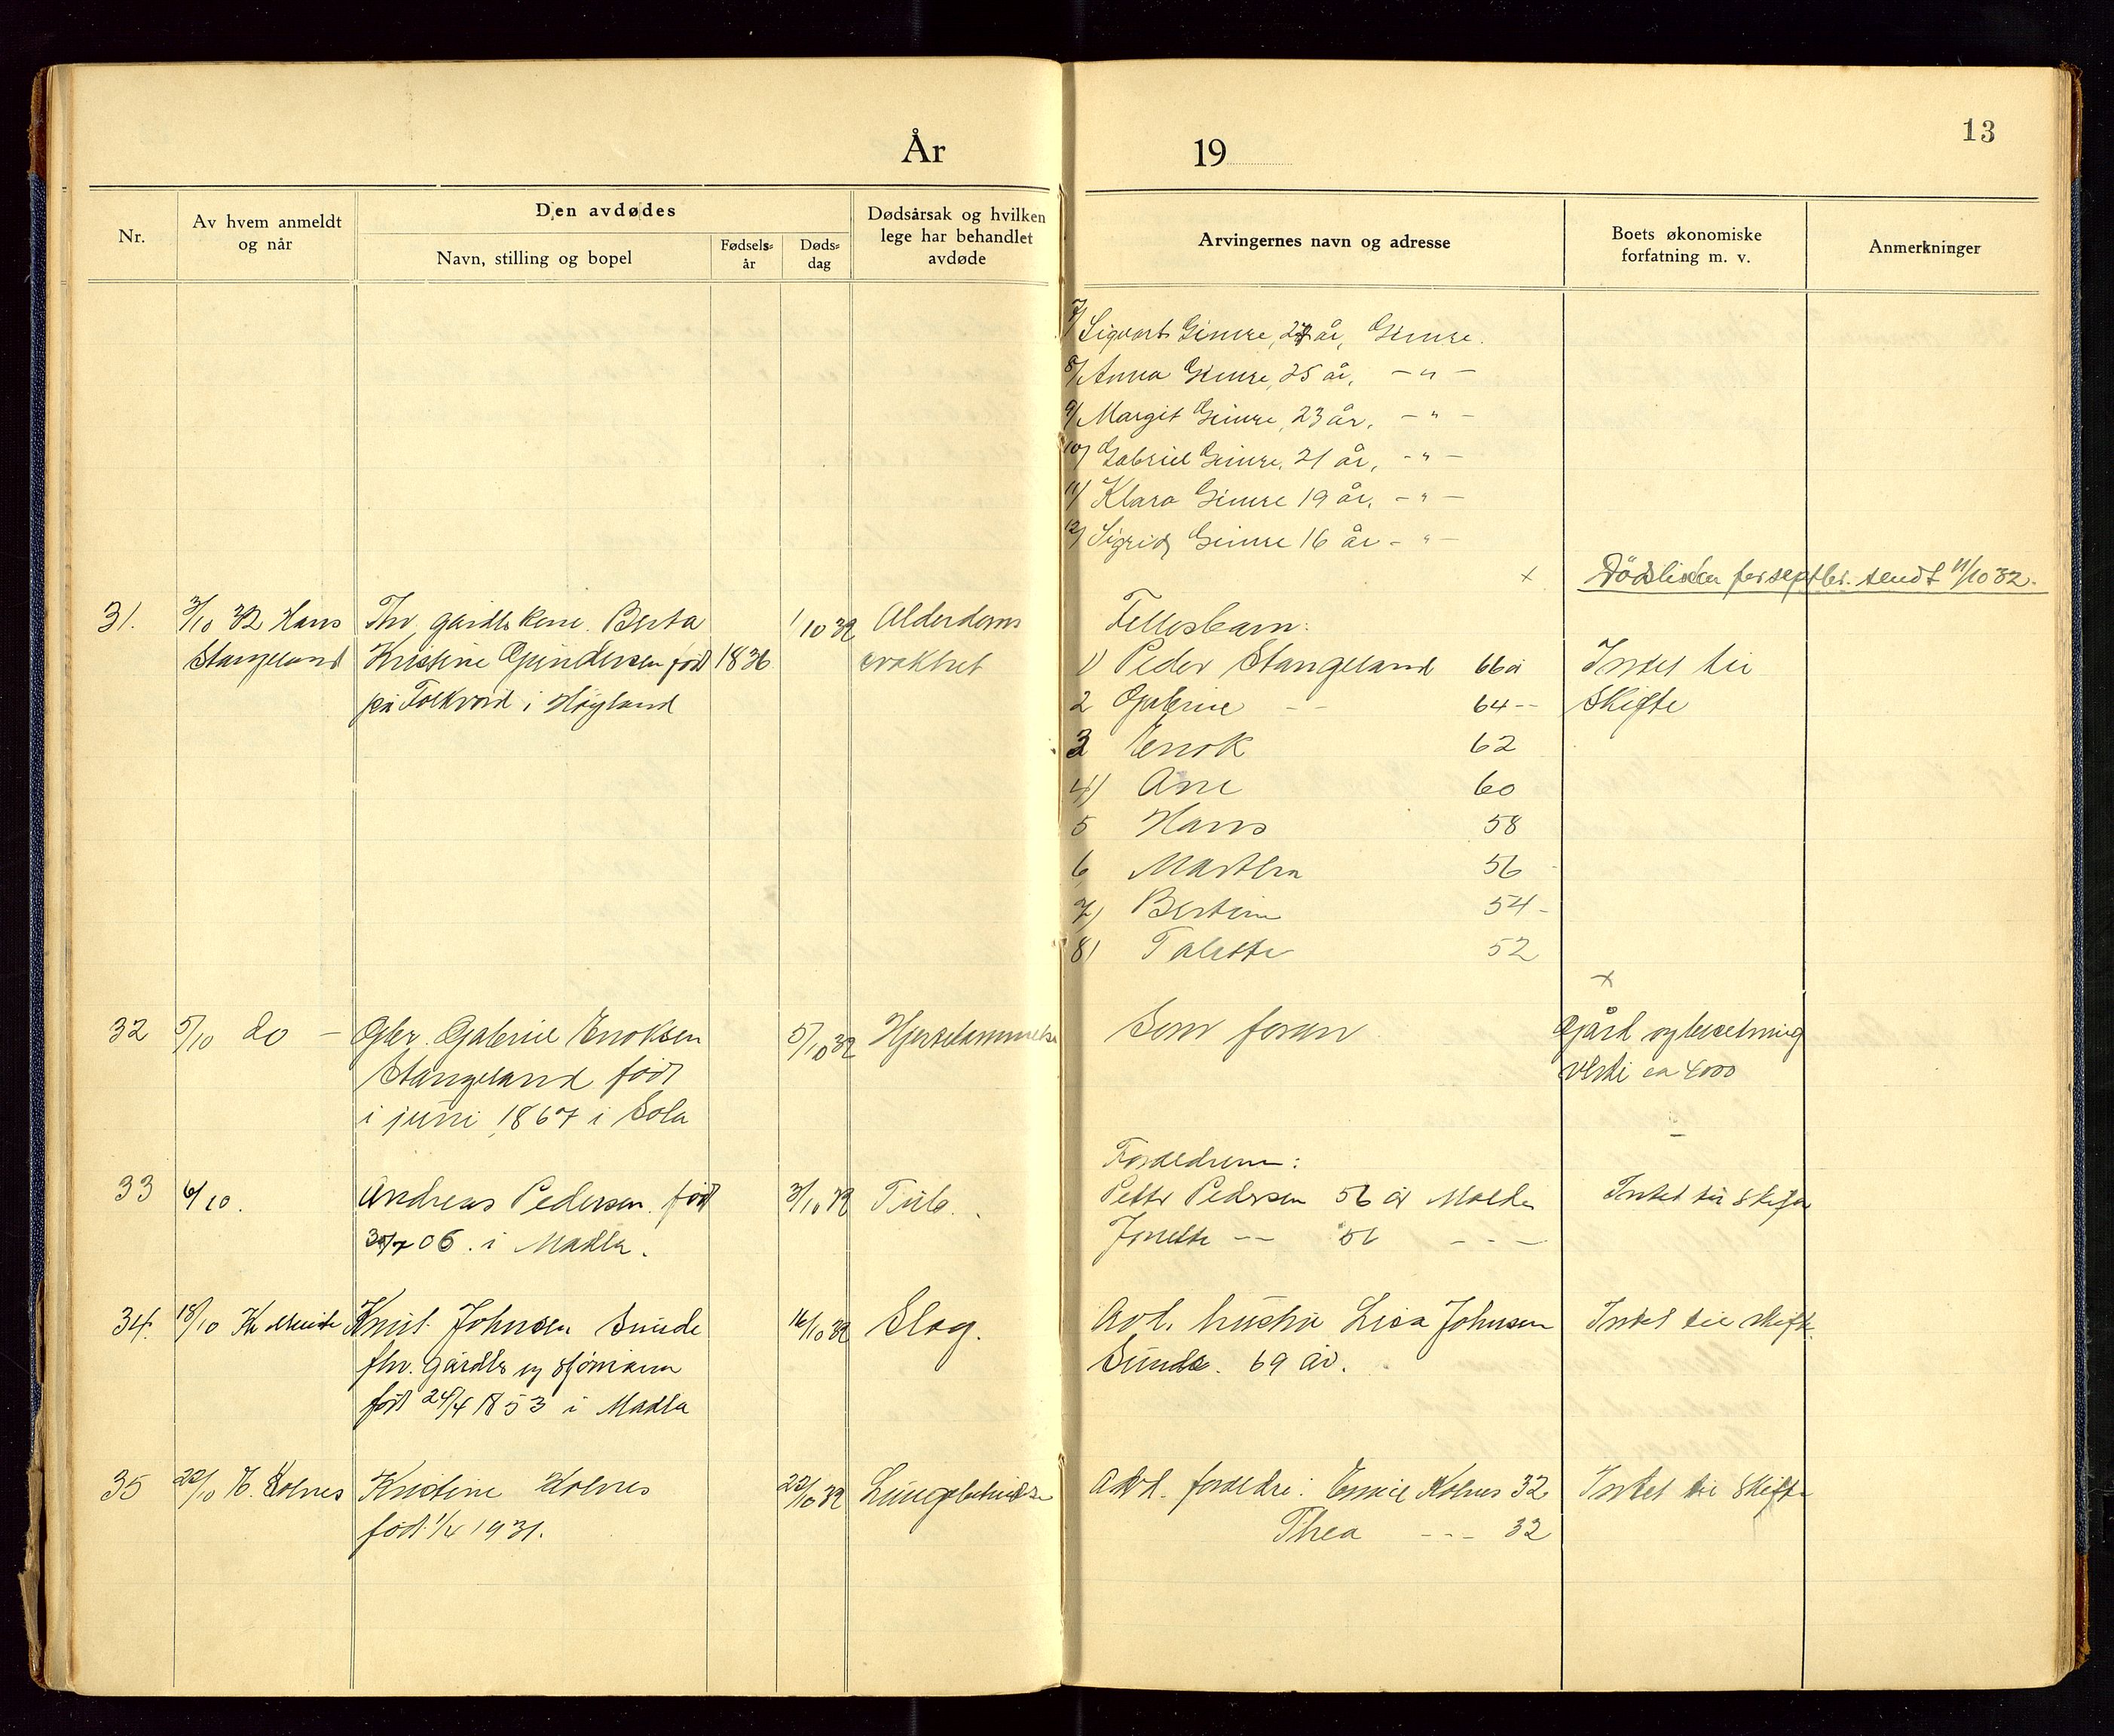 År 19
13
Nr.
Av hvem anmeldt
og når
Den avdødes
Navn, stilling og bopel
Fødsels-
år
Døds-
dag
Dødsårsak og hvilken
lege har behandlet
avdøde
Arvingernes navn og adresse
Boets økonomiske
forfatning m. v.
Anmerkninger
7/ Sigvart Gimre, år, Gimre.
8/ Anna Gimre, 25 år, — " —
9/ Margit Gimre, 23 år, — " —
10/ Gabriel Gimre, 21 år, - " —
11/ Klara Gimre 19 år, - " —
12/ Sigrid Gimre 16 år - " —
x Dødslisten for septbr. sendt 11/10 32.
31. 3/10 32 Hans
Stangeland
Berta
Kristine født 1836
på Folkvord i Høyland
1/10 32
Alderdoms
svakhet
Fellesbarn:
1) Peder Stangeland 66 år
2 Gabriel - - 64 --
3 Enok 62
4) Ane 60
5 Hans 58
6 Martha 56
7) Bertine 54 -
8) Talette 52
Intet til
Skifte
x
32 5/10 do —
Gbr. Gabriel Enoksen
Stangeland født
i juni 1867 i Sola
5/10 32
Som foran
Gård og besetning
verdi ca 4000
33 6/10.
Andreas Pedersen. født
06. i Madla.
3/10 32
Tub.
Foreldrene:
Petter Pedersen 56 år
Jonette -- 56 - - —
Intet til skifte
34. 18/10
Knut Johnsen Sunde
fhv. gårdbr og sjømann
født 24/4 1853 i Madla
16/10 32
Slag.
Avl. hustru Lisa Johnsen
Sunde. 69 år.
Intet til skifte
35 22/10 Kolnes
Kristine Kolnes
født 1/4 1931.
22/10 32
Lungebetendelse
Avd. foreldre: Emil Kolnes 32
Thea - - - 32
Intet til skifte